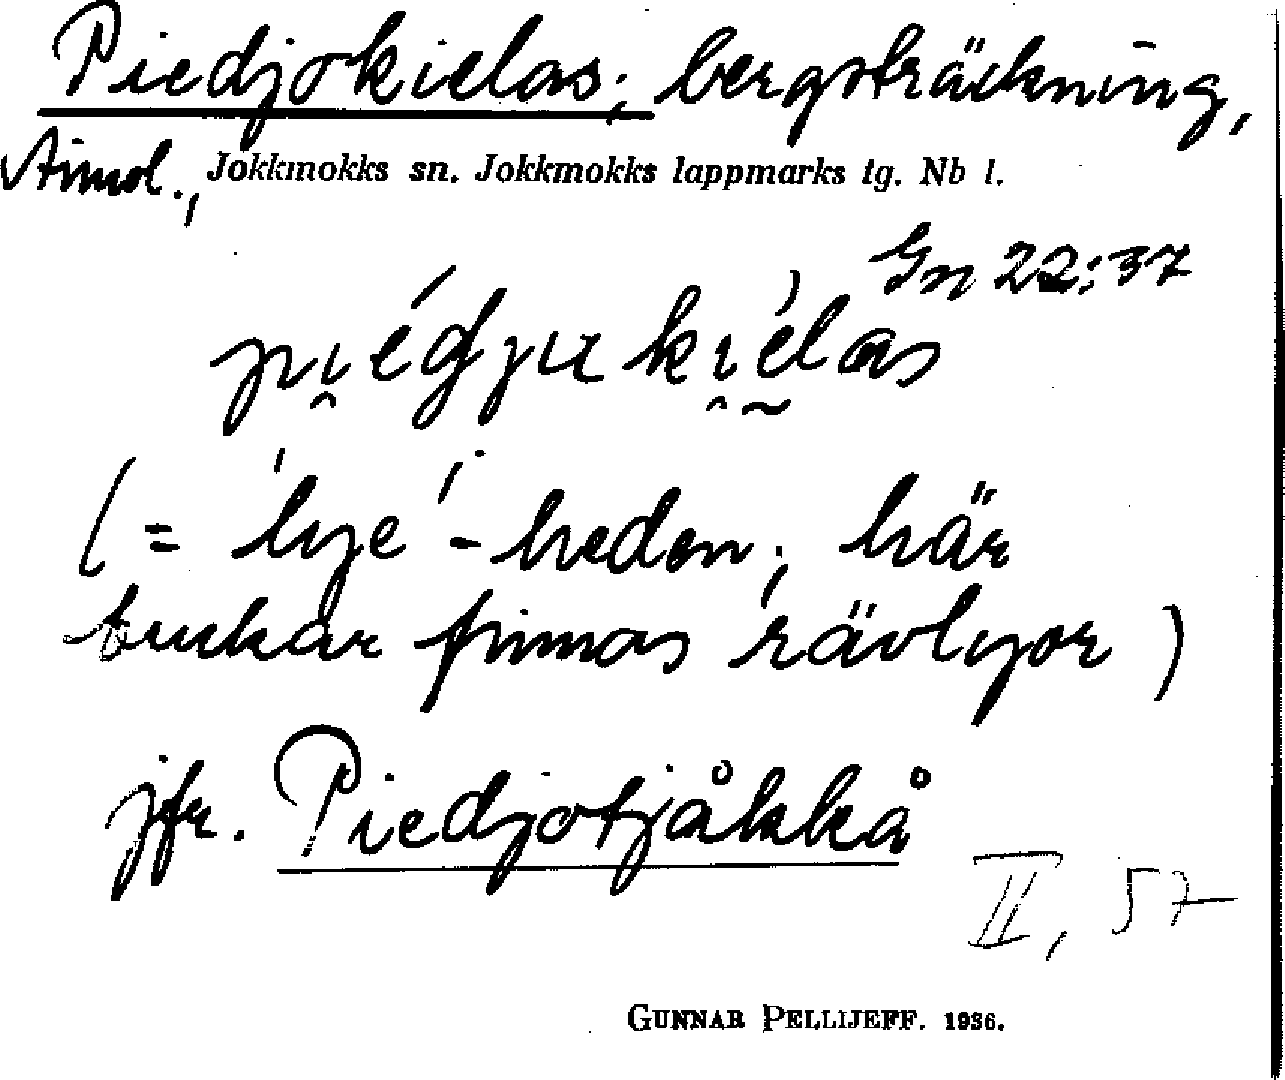 Piedjokielas; bergsträckning,
Jokkmokks sn. Jokkmokks lappmarks tg. Nb l.
Gn 22:37
(= 'lye' -heden; här
brukar finnas rävlyor)
jfr. Piedjotjåkkå
II, 57
GUNNAR PELLIJEFF. 1936.